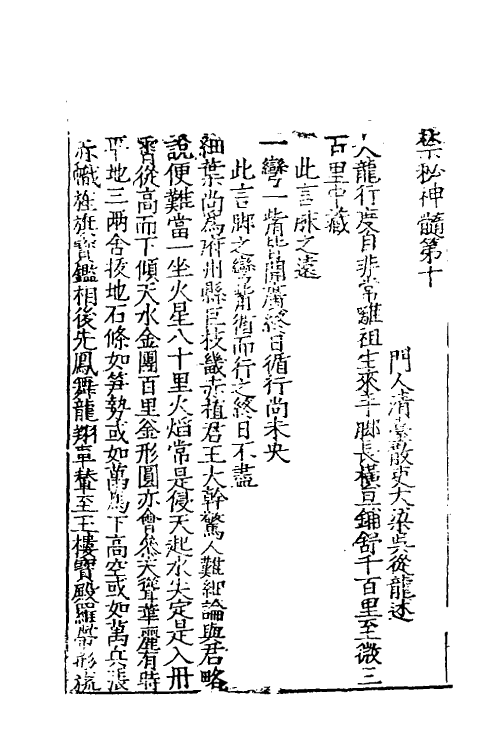 禁秘神髓第十
門人清臺散吏大梁吳從龍述
大龍行度自非常離祖生來手脚長橫亘鋪舒千百里至微三
百里中藏
此言脉之遠
一彎一背皆開廣終日循行尚未央
此言脚之彎背循而行之終日不盡
細葉尚為府州縣巨枝畿赤植君王大幹驚人難細論與君略
說便難當一坐火星八十里火熖常是侵天起水失定是入冊
霄從高而下傾天水金團百里釜形圓亦會叅天聳華麗有時
平地三兩舍拔地石條如笋勢或如萬馬下高空或如萬兵張
赤幟旌旗寶鑑相後先鳳舞龍翔車輦至玉樓寶殿羅幣形旒